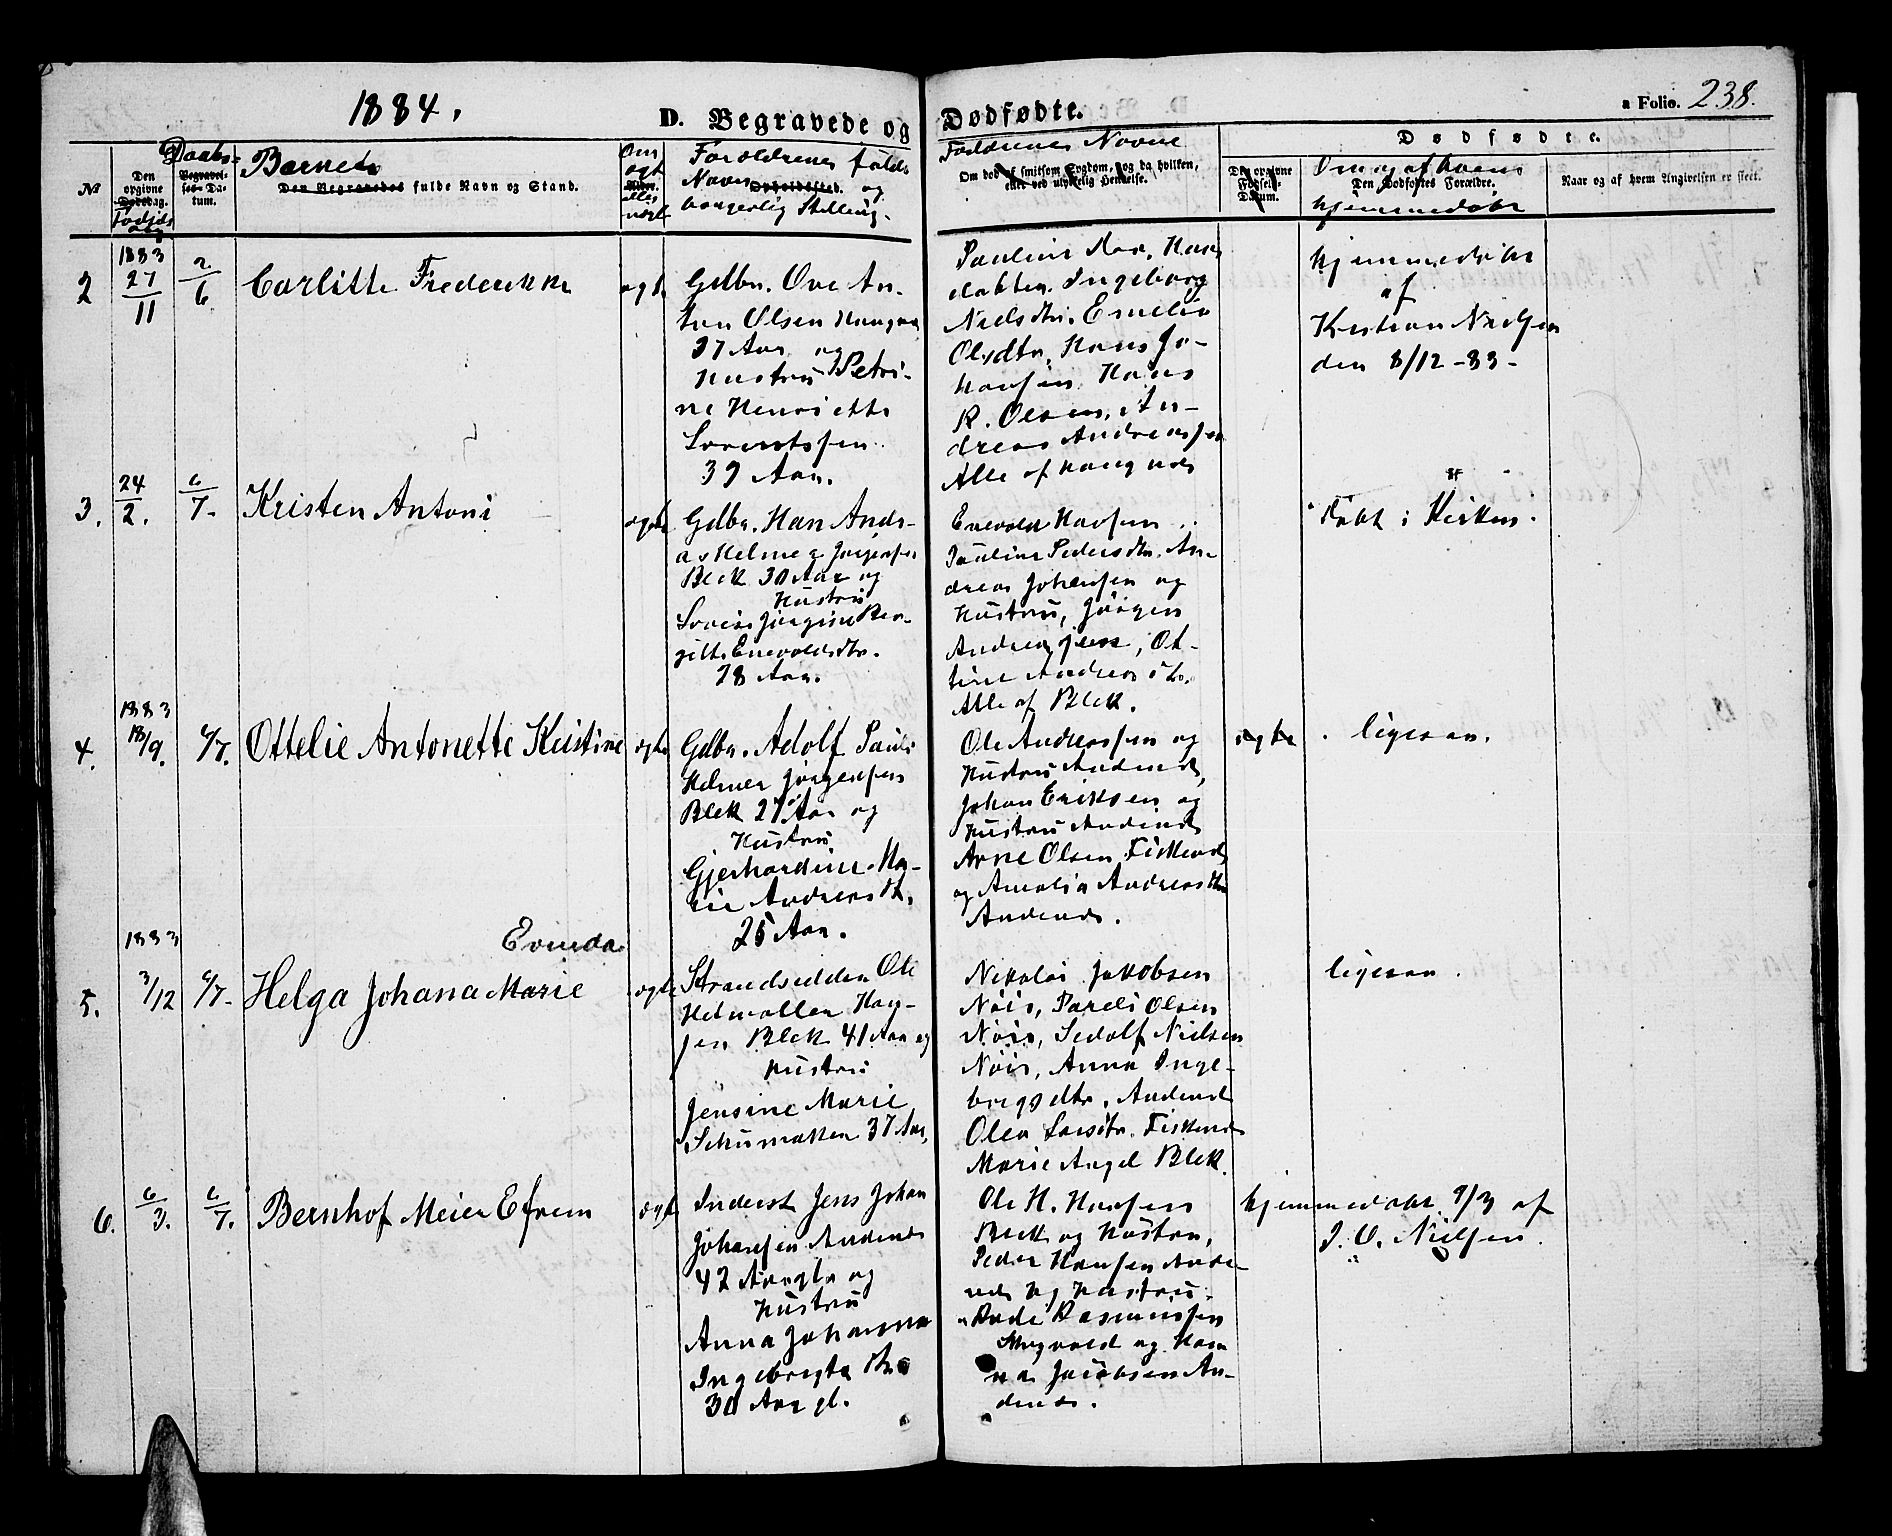 1884.
D. Begravede og Dødfødte.
a Folio. 238.
Daabs-
No
Den opgivne Dødsdag.
Fødsels
Begravelses-Datum.
Barnets
Den Begravedes fulde Navn og Stand.
Om ægte eller uægte
Forældrenes fulde
Navn og
Opholdssted.
borgerlig Stilling.
Faddernes Navne
Om død af smitsom Sygdom, og da hvilken,
eller ved ulykkelig Hændelse.
Dødfødte.
Den opgivne Fødsels-Datum.
Om og af hvem
Den Dødfødtes Forældre.
hjemmedøbt
Naar og af hvem Angivelsen er skeet.
2
1883
27/11
2/6
Carlitte Frederikke
ægte
Gdbr. Ove An-
ton Olsen Haugnes
37 Aar og
Hustru Petri-
ne Henriette
39 Aar.
Nielsdtr. Emelie
Olsdtr. Hans Jo-
hansen Hans
R. Olsen, An-
dreas Andreassen
Alle af Haugnes
hjemmedøbt
af
Kristian Nielsen
den 8/12-83-
3.
24/2.
6/7-
Kristen Antoni
ægte
Gdbr. Han Andr-
as Helmer Jørgensen
Blek 30 Aar og
Hustru
gitte Enevoldsdtr.
28 Aar.
Enevold Hansen
Pauline Pedersdtr. An-
dreas Johansen og
Hustru, Jørgen
Andreasen, Ot-
tine Andreasdtr.
Alle af Blek.
Døbt i Kirken.
4.
1883
18/9.
6/7.
Ottelie Antonette Kristine
ægte
Gdbr. Adolf Pauli
Helmer Jørgensen
Blek 27 Aar og
Hustru
Gjerhardine Ma-
rie Andreasdt.
25 Aar.
Ole Andreassen og
Hustru Andenes,
Johan Eriksen og
Hustru Andenes
Arne Olsen Fiskenes
og Amalia Andreasdtr
Andenes.
ægte
ligesaa.
5.
1883
3/12
6/7-
Evinda
Helga Johana Marie
ægte
Strandsidder Ole
Hetmallen Han-
sen Blek 41 Aar og
Hustru
Jensine Marie
Schumakker 37 Aar,
Nikolai Jakobsen
Nøis, Pareli Olsen
Nøis, Sedolf Nielsen
Nøis, Anna Inge-
brigsdtr. Andenes
Olea Larsdtr. Fiskenes
Marie Angel Blek.
ligesaa.
6.
6/3.
6/7.
Bernhof Meier Efrem
ægt
Inderst Jens Johan
Johansen Andenes
42 Aargl. og
Hustru
Anna Johanna
Ingebrigtsdtr.
30 Aar gl.
Ole H. Hansen
Blek og Hustru,
Peder Hansen Ande-
nes og Hustru.
Rasmussen
og Han
na Jacobsen An-
denes.
hjemmedøbt 9/3 af
J. O. Nielsen.